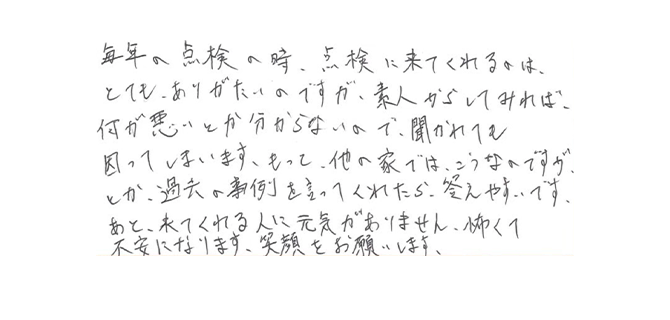 毎年の点検の時、点検に来てくれるのは、
とても、ありがたいのですが、素人からしてみれば、
何が悪いとか分からないので、聞かれても
困ってしまいます、もっと、他の家では、こうなのですが、
とか、過去の事例を言ってくれたら、答えやすいです、
あと、来てくれる人に元気がありません、怖くて
不安になります、笑顔をお願いします、